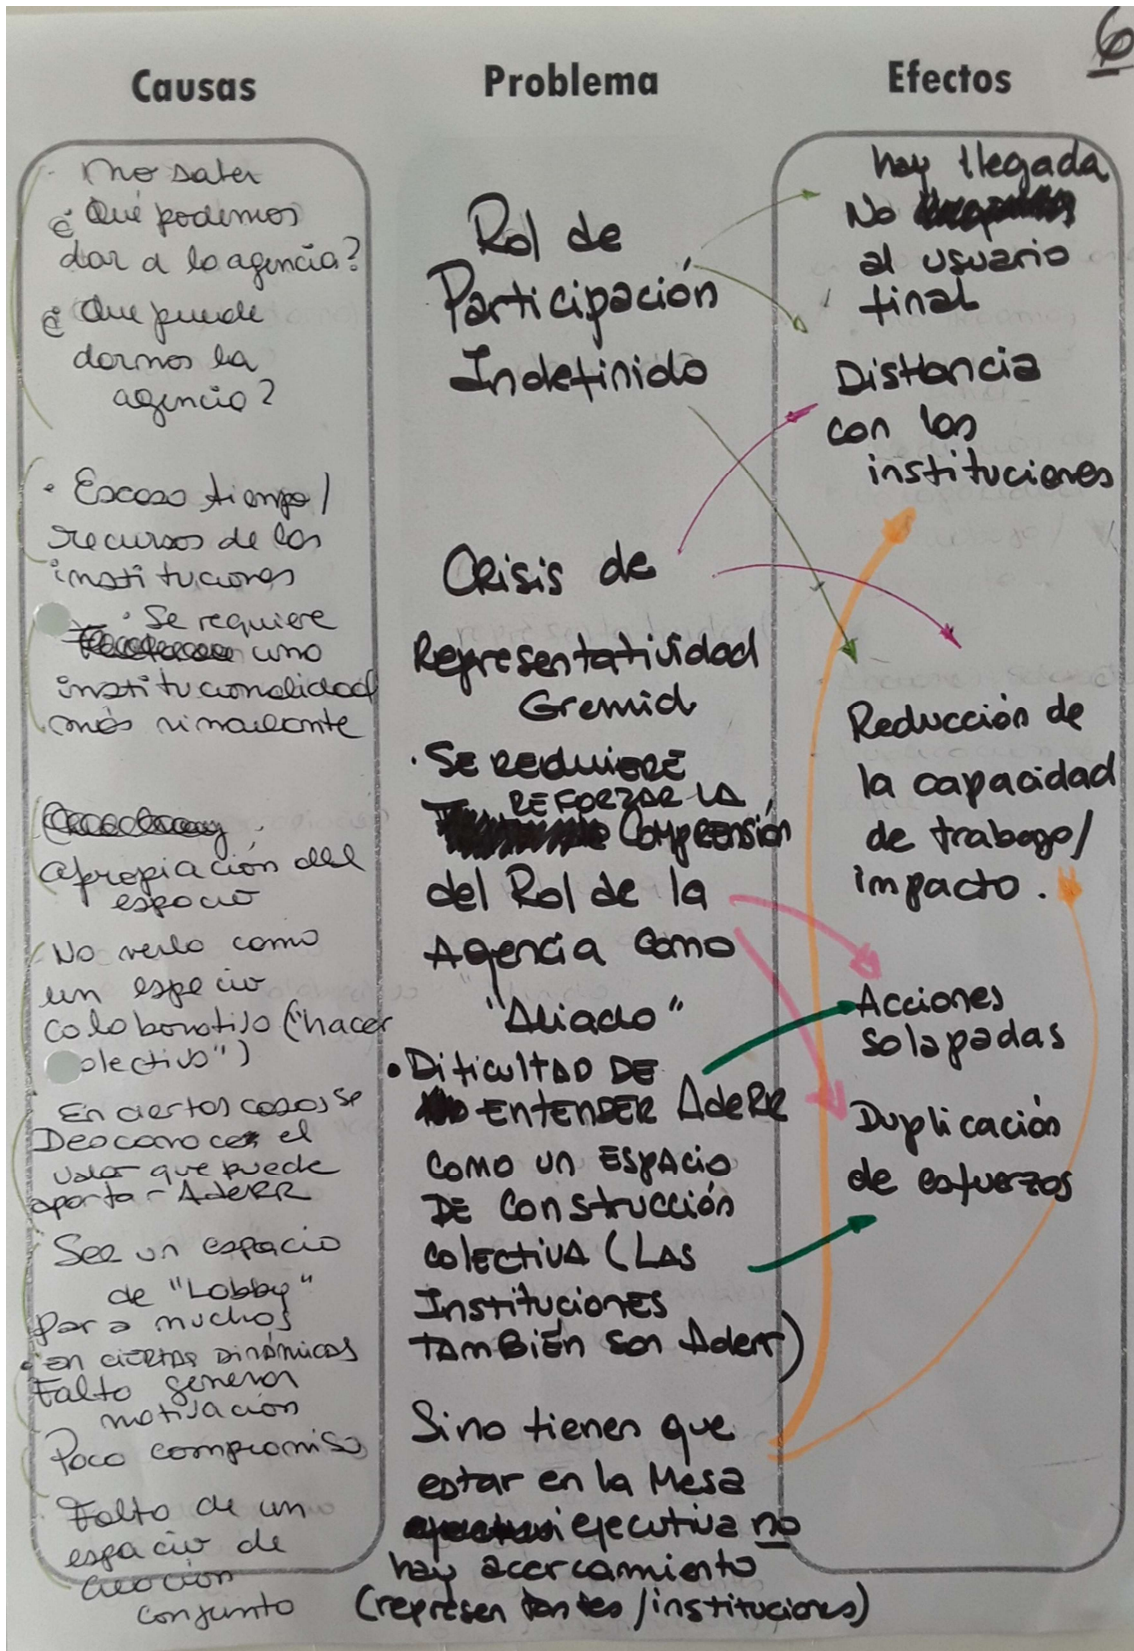 6
Causas
Problema
Efectos
· no saber
¿ Qué podemos
dar a la agencia?
¿ Que puede
darnos la
agencia?
· Escaso tiempo /
recursos de las
instituciones
· Se requiere
una
institucionalidad
más
apropiación del
espacio
No verlo como
un espacio
colaborativo ("hacer
colectivo")
En ciertos casos se
Desconocer el
valor que puede
aportar AdeRR
Ser un espacio
de "Lobby"
para muchos
· en ciertas dinámicas
Falta generar
motivación
Poco compromiso
Falta de un
espacio de
creación
conjunto
Rol de
Participación
Indefinido
Crisis de
Representatividad
Gremial
· SE REQUIERE
REFORZAR LA
COMPRENSIÓN
del Rol de la
Agencia como
"Aliado"
• Dificultad DE
ENTENDER AdeRR
como un ESPACIO
DE Construcción
colectiva (LAS
Instituciones
TAMBIÉN son Aderr)
Sino tienen que
estar en la Mesa
ejecutiva no
hay acercamiento
(representantes / instituciones)
hay llegada
No
al usuario
final
Distancia
con las
instituciones
Reducción de
la capacidad
de trabajo/
impacto.
Acciones
solapadas
Duplicación
de esfuerzos